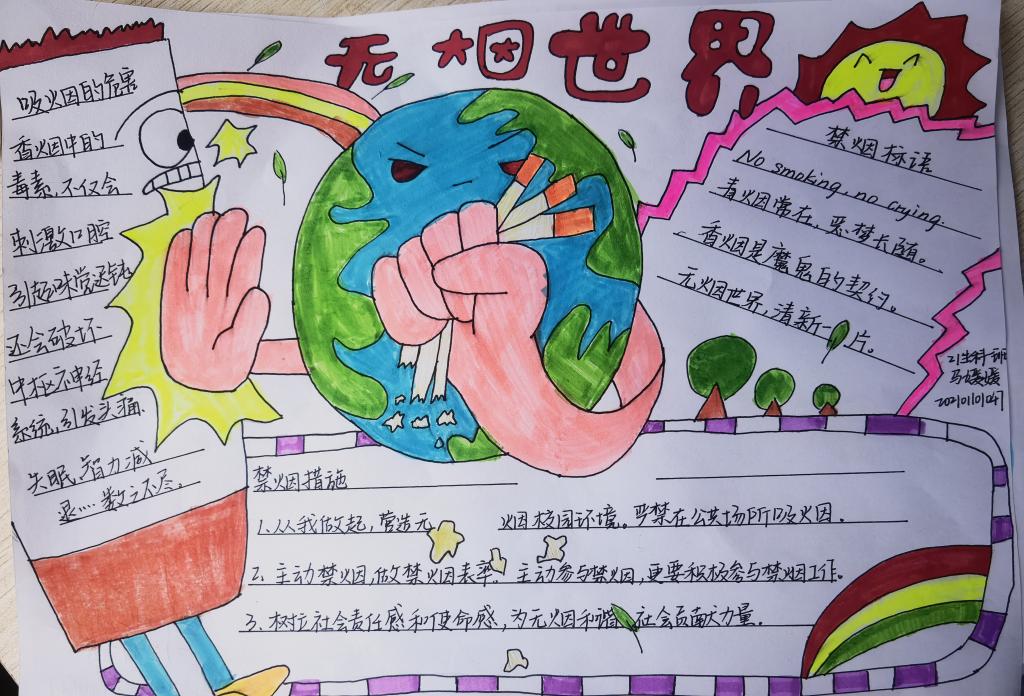 无烟世界
吸烟的危害
香烟中的
毒素,不仅会
刺激口腔
引起味觉迟钝
还会破坏
中枢神经
系统,引发头痛
失眠,智力减
退……数之不尽。
禁烟标语
No smoking, no crying.
香烟常在,恶梦长随。
香烟是魔鬼的契约。
无烟世界,清新一片。
21生科一班
马媛媛
禁烟措施
1、从我做起,营造无烟校园环境。严禁在公共场所吸烟。
2、主动禁烟,做禁烟表率,主动参与禁烟,更要积极参与禁烟工作。
3、树立社会责任感和使命感,为无烟和谐社会贡献力量。